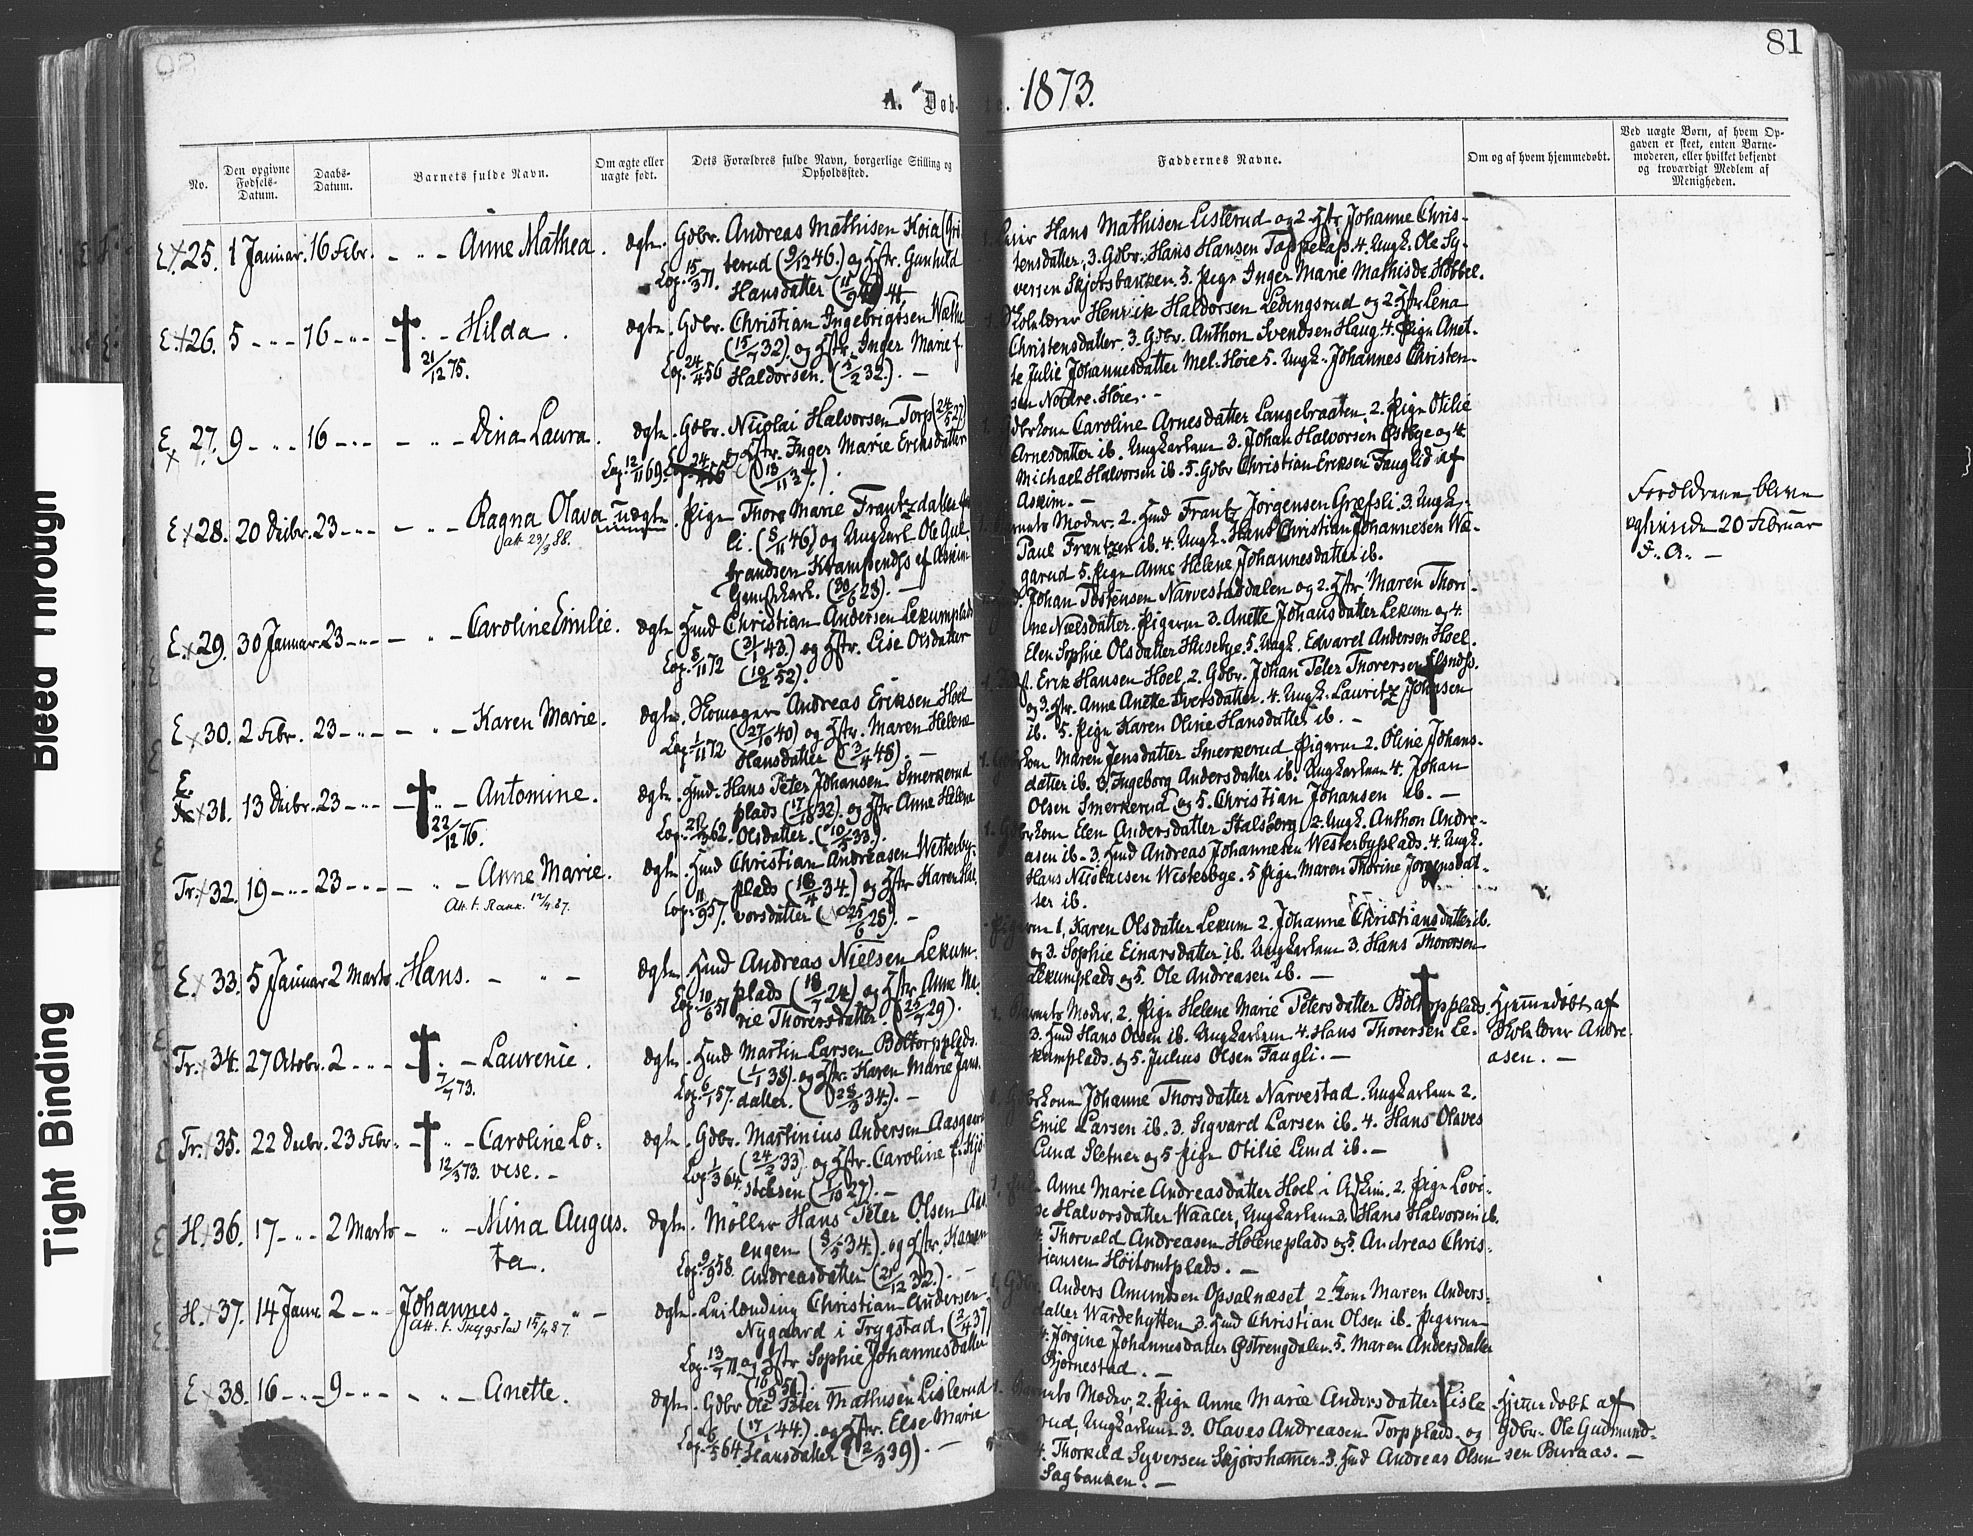 81
A. Døb- 1873.
No.
Den opgivne Fødsels-Datum.
Daabs-Datum.
Barnets fulde Navn.
Om ægte eller uægte født.
Dets Forældres fulde Navn, borgerlige Stilling og Opholdssted.
Faddernes Navne.
Om og af hvem hjemmedøbt.
Ved uægte Børn, af hvem Op-
gaven er skeet, enten Barne-
moderen, eller hvilket bekjendt
og troværdigt Medlem af
Menigheden.
E. 25. 1 Januar. 16 Febr. Anne Mathea. ægte. Gdbr. Andreas Mathisen Hoia
terud (9/12 46.) og Hstr. Gunhild
Hansdatter
Cop. 15/3 71.
Hans Mathisen Listerud og 2 Hstr. Johanne Chris-
tensdatter, 3. Gdbr. Hans Hansen Toppelaps. 4. Ungk. Ole Sy-
versen Skjørsbanken. 5. Pige Inger Marie Mathisdr. Hobbel.
E. 26. 5 16 Hilda. ægte. Gdbr. Christian Ingebrigtsen
21/12 75.
(15/7 32) og Hstr. Inger Marie f.
Cop. 24/4 56 Haldorsen. (2/2 32.). –
Skoleholder Henrik Haldorsen Ledingsrud og 2 Hstr. Lena
Christensdatter. 3. Gdbr. Anthon Svendsen Haug. 4. Pige Anet-
te Julie Johannesdatter Mel-Høie 5. Ungk. Johannes Christen-
sen Nordre-Høie. –
E. 27. 9 16 Dina Laura. ægte. Gdbr. Nicolai Halvorsen Torp (24/5 27)
og Hstr. Inger Marie Eriksdatter
Cop. 12/11 69. (13/11 37.)
1. Gdbrkone Caroline Arnesdatter Langebraaten. 2. Pige Otilie
Arnesdatter ib. Ungkarlene 3. Johan Halvorsen Østbye og 4.
Michael Halvorsen ib. 5. Gdbr. Christian Eriksen Fauglid af
Askim. –
E. 28. 20 Decbr. 23 Ragna Olava uægte. Pige Thora Marie Frantzdatter
Att. 23/3 88.
li. (5/11 46) og Ungkarl Ole Gul-
brandsen Krampends af Askim
Gamelkarl. (20/6 23). –
Barnets Moder. 2. Hmd Frantz Jørgensen Græfsli. 3. Ungk.
Paul Frantzen ib. 4. Ungk. Hans Christian Johannesen Wa-
garud 5. Pige Anne Helene Johannesdatter ib.
Forældrene bleve
egteviede 20 Februar
s. A. –
E. 29. 30 Januar 23 Caroline Emilie. ægte Hmd Christian Andersen Lekumplads
(3/1 43.) og Hstr. Lise Olsdatter
Cop. 8/11 72 (19/2 52).
Johan Tostensen Narvestaddalen og 2. Hstr. Maren Thori-
ne Nielsdatter. Pigerne 3. Anette Johansdatter Lekum og 4.
Elen Sophie Olsdatter Husebye. 5. Ungk. Edvard Andersen Hoel.
E. 30. 2 Febr. 23 Karen Marie. ægte. Skomager Andreas Eriksen Hoel
(27/10 40) og Hstr. Maren Helene
Cop. 1/11 72 Hansdatter (3/4 48). –
Erik Hansen Hoel. 2. Gdbr. Johan Peter Thoresen
og 3. Hstr. Anne Anette Iversdatter. 4. Ungk. Lauritz Johnsen
ib. 5. Pige Karen Oline Hansdatter ib. –
E. 31. 13 Decbr. 23 Antomine. ægte. Hmd. Hans Peter Johansen Smerkerud
22/12 76.
plads (17/12 32) og Hstr. Anne Helene
Olsdatter. (10/5 33).
1. Gdbrkone Maren Jensdatter Smerkerud Pigerne 2. Oline Johans-
datter ib. 3. Ingeborg Andersdatter ib. Ungkarlene 4. Johan
Olsen Smerkerud og 5. Christian Johansen ib. –
Tr. 32. 19 23 Anne Marie. ægte. Hmd Christian Andreasen Westerby-
Att. t. Rakk. 12/4 87.
plads (18/4 34.) og Hstr. Karen Hal-
Cop. 11/9 57. vorsdatter (25/6 28). –
1. Gdbrkone Elen Andersdatter Stalsberg 2. Ungk. Anthon Andre-
asen ib. 3. Hmd Andreas Johannesen Westerbyplads. 4. Ungk.
Hans Nicolaisen Westerbye. 5. Pige Maren Thorine Jørgensdat-
ter ib.
E. 33. 5 Januar 2 Marts. Hans. ægte Hmd Andreas Nielsen Lekum-
plads (18/7 24) og Hstr. Anne Ma-
Cop. 10/6 51 rie Thorersdatter. (25/7 29).
Pigerne 1. Karen Olsdatter Lekum 2. Johanne Christiansdatter ib.
og 3. Sophie Einarsdatter ib. Ungkarlene 3. Hans Thoresen
Lekumplads og 5. Ole Andreasen ib. –
Tr. 34. 27 Octobr. 2 Laurense. ægte. Hmd Martin Larsen Boltorpplads.
7/7 73.
(1/1 38). og Hstr. Karen Marie Jans-
Cop. 6/1 57. datter. (28/3 34.). –
1. Barnets Moder. 2. Pige Helene Marie Petersdatter Boltorpplads.
3. Hmd Hans Olsen ib. Ungkarlene 4. Hans Thoresen Le-
kumplads og 5. Julius Olsen Faugli. –
Hjemmedøbt af
Skoleholder Andre-
asen. –
Tr. 35. 22 Decbr. 23 Febr. Caroline Lo-
vise. –
12/3 73.
ægte. Gdbr. Martinius Andersen Aasgaard
(24/2 33) og Hstr. Caroline f. Kjø-
Cop. 1/3 64. stelsen (1/10 27). –
1. Gdbrkone Johanne Thorsdatter Narvestad. Ungkarlene 2.
Emil Larsen ib. 3. Sigvard Larsen ib. 4. Hans Olaves
Lund Sletner og 5 Pige Otilie Lund ib. –
H. 36. 17 2 Marts Mina Augus-
ta.
ægte. Møller Hans Peter Olsen
engen (8/5 34.). og Hstr. Karen
Cop. 9/9 58 Andreasdatter (21/12 32.). –
Anne Marie Andreasdatter Hoel i Askim. 2. Pige Lovi-
se Halvorsdatter Waaler. Ungkarlene 3. Hans Halvorsen ib.
4. Thorvald Andreasen Holeneplads og 5. Andreas Chris-
tiansen Høitomtplads. –
H. 37. 14 Janr. 2 Johannes. ægte. Leilænding Christian Andersen
Att. t. Trygstad 15/4 87.
Nygaard i Trygstad. (2/4 37)
Cop. 13/7 71 og Hstr. Sophie Johannesdatter
(16/9 51)
1. Gdbr. Anders Amundsen Opsalnæset 2. Kone Maren Anders-
datter Wardehytten 3. Hmd Christian Olsen ib. Pigerne
4. Jørgine Johannesdatter Østrengdalen. 5. Maren Andersdatter
Bjørnestad. –
E. 38. 16 9 Anette. ægte. Gdbr Ole Peter Mathisen Listerud
(17/1 44.). og Hstr. Else Marie
Cop. 6/5 64. Hansdatter (2/3 39). –
1. Barnets Moder, 2. Pige Anne Marie Andersdatter Liste-
rud, Ungkarlene 3. Olaves Andreasen Torpplads. og
4. Thorkild Syversen Skjørshamer. 5. Hmd Andreas Olsen
Sagbanken. –
Hjemmedøbt af
Gdbr. Ole Gudmund-
sen Buraas. –
Bleed Through
Tight Binding